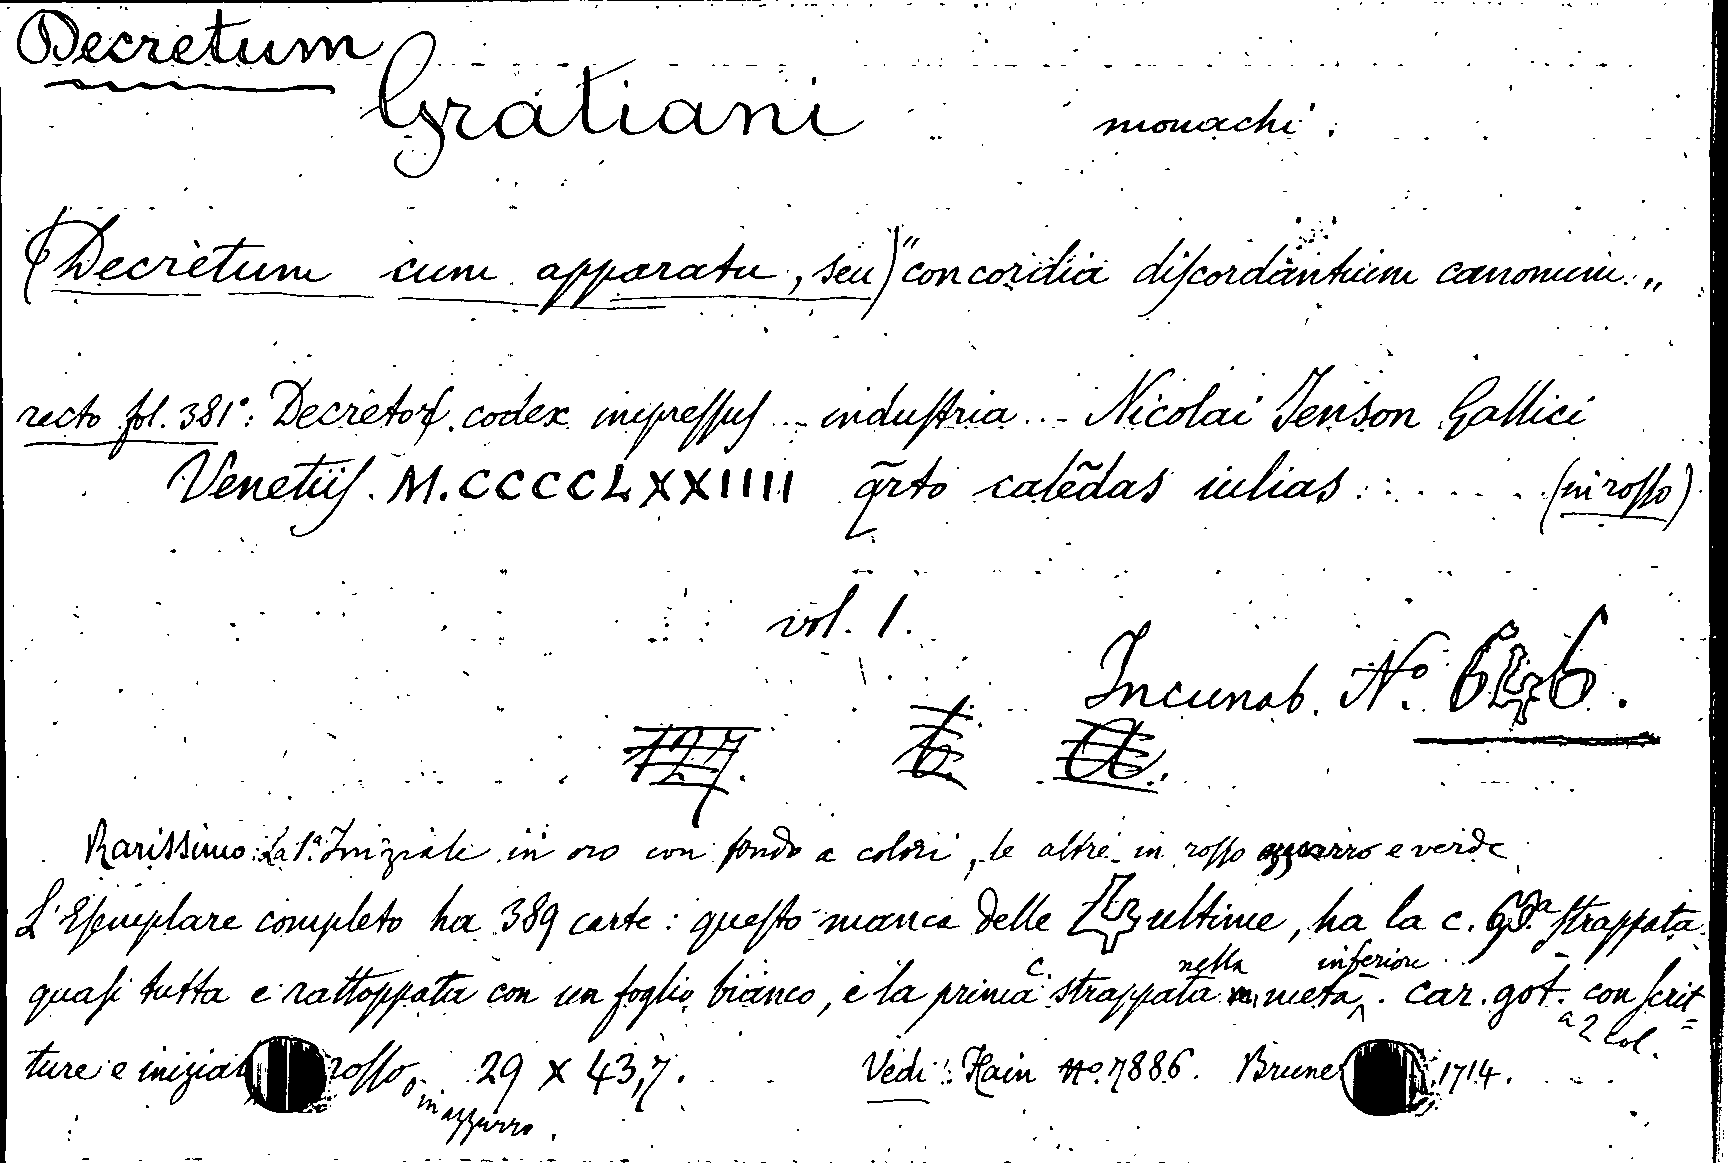 Decretum
Gratiani monachi.
(Decretum cum apparatu, seu) "concordia diſcordantium canonum.„
recto fol. 381°: Decretoꝝ. codex impreſſuſ ... induſtria ... Nicolai Jenson Gallici
Venetiiſ. M.CCCCLXXIIII q̃rto calẽdas iulias ...... (in roſſo)
vol. 1.
Incunab. N.º 646.
127. b. a.
Rarissimo. La 1ª. Iniziale in oro con fondo a colori, le altre in roſſo azzurro e verde
L'Eſemplare completo ha 389 carte: queſto manca delle ultime, ha la c. ſtrappata
quaſi tutta e rattoppata con un foglio bianco, e la prima c. strappata nella metà inferiore. car. got. a 2 col. con ſcrit=
ture e roſſo o in azzurro. 29 x 43,7. Vedi: Hain Nº. 7886. 1714.